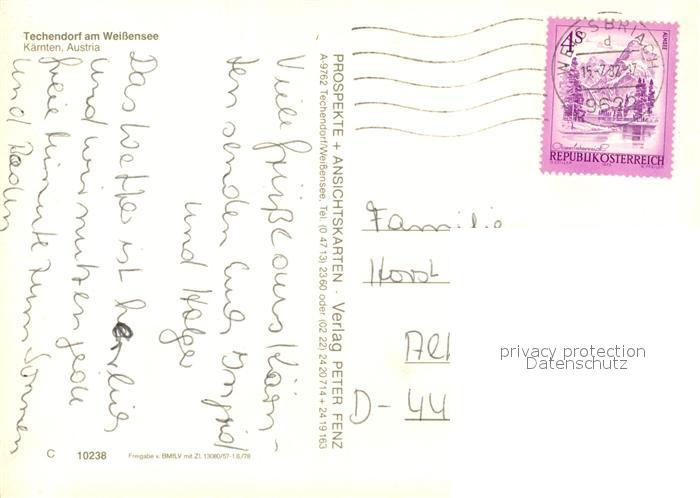 Techendorf am Weißensee
Kärnten, Austria
Viele Grüße aus Kärn-
ten senden Euch Ingrid
und Holger
Das Wetter ist herrlich
und wir nutzen jede
freie Minute zum Sonnen
und Baden
PROSPEKTE + ANSICHTSKARTEN · Verlag PETER FENZ
A-9762 Techendorf/Weißensee, Tel. (0 47 13) 23 60 oder (02 22) 24 20 714 + 24 19 163
C 10238 Freigabe v. BMfLV mit Zl. 13080/57-1.6./78
4 S
ALMSEE
Oberösterreich
REPUBLIK ÖSTERREICH
9622
Familie
Horst
Al
D - 44
privacy protection
Datenschutz